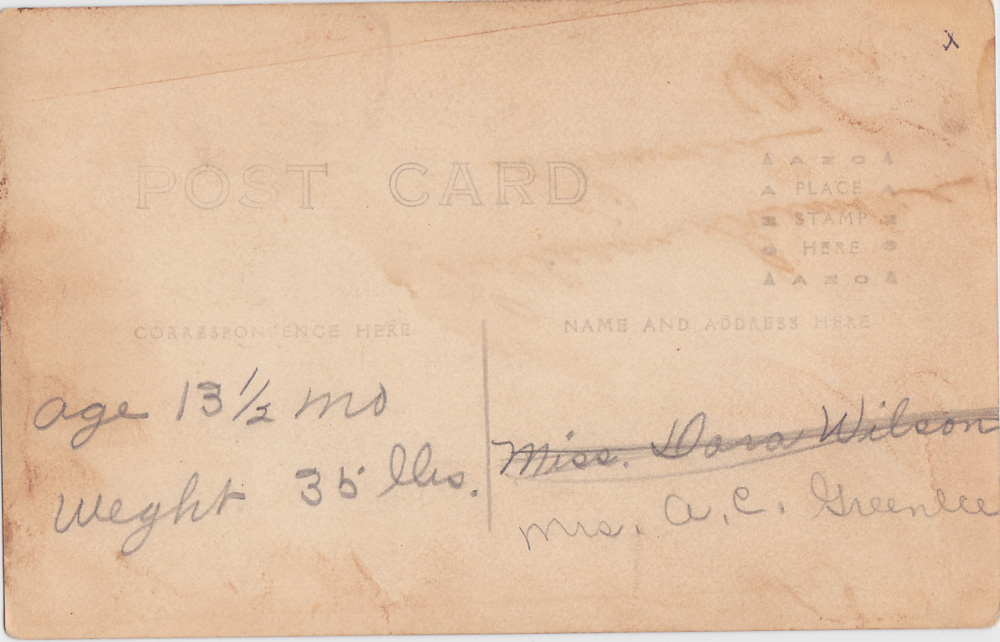 x
POST CARD
AZO
PLACE
STAMP
HERE
AZO
CORRESPONDENCE HERE
NAME AND ADDRESS HERE
age 13 1/2 mo
Weght 35 lbs.
Miss. Dora Wilson
Mrs. A. C. Greenlee